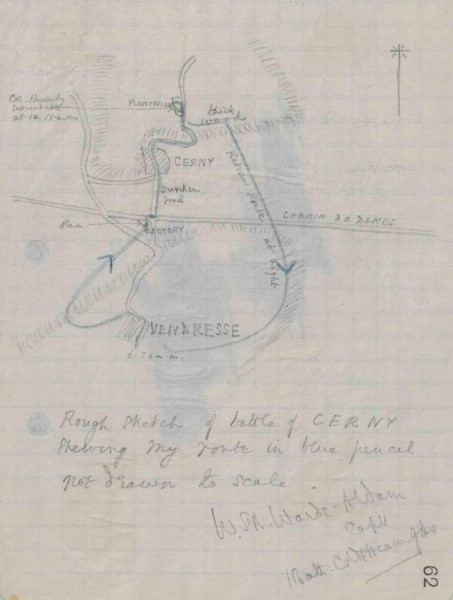 Col.
wounded
at 10.15 a.m.
PLANTATION
thick
woods
CERNY
sunken
road
Return route at night
CHEMIN DES DAMES
FACTORY
VENDRESSE
6.30 a.m.
Rough sketch of battle of CERNY
Shewing my route in blue pencil
not drawn to scale
W. St A. Warde-Aldam
Capt
1 Batt. Coldstream Gds
62